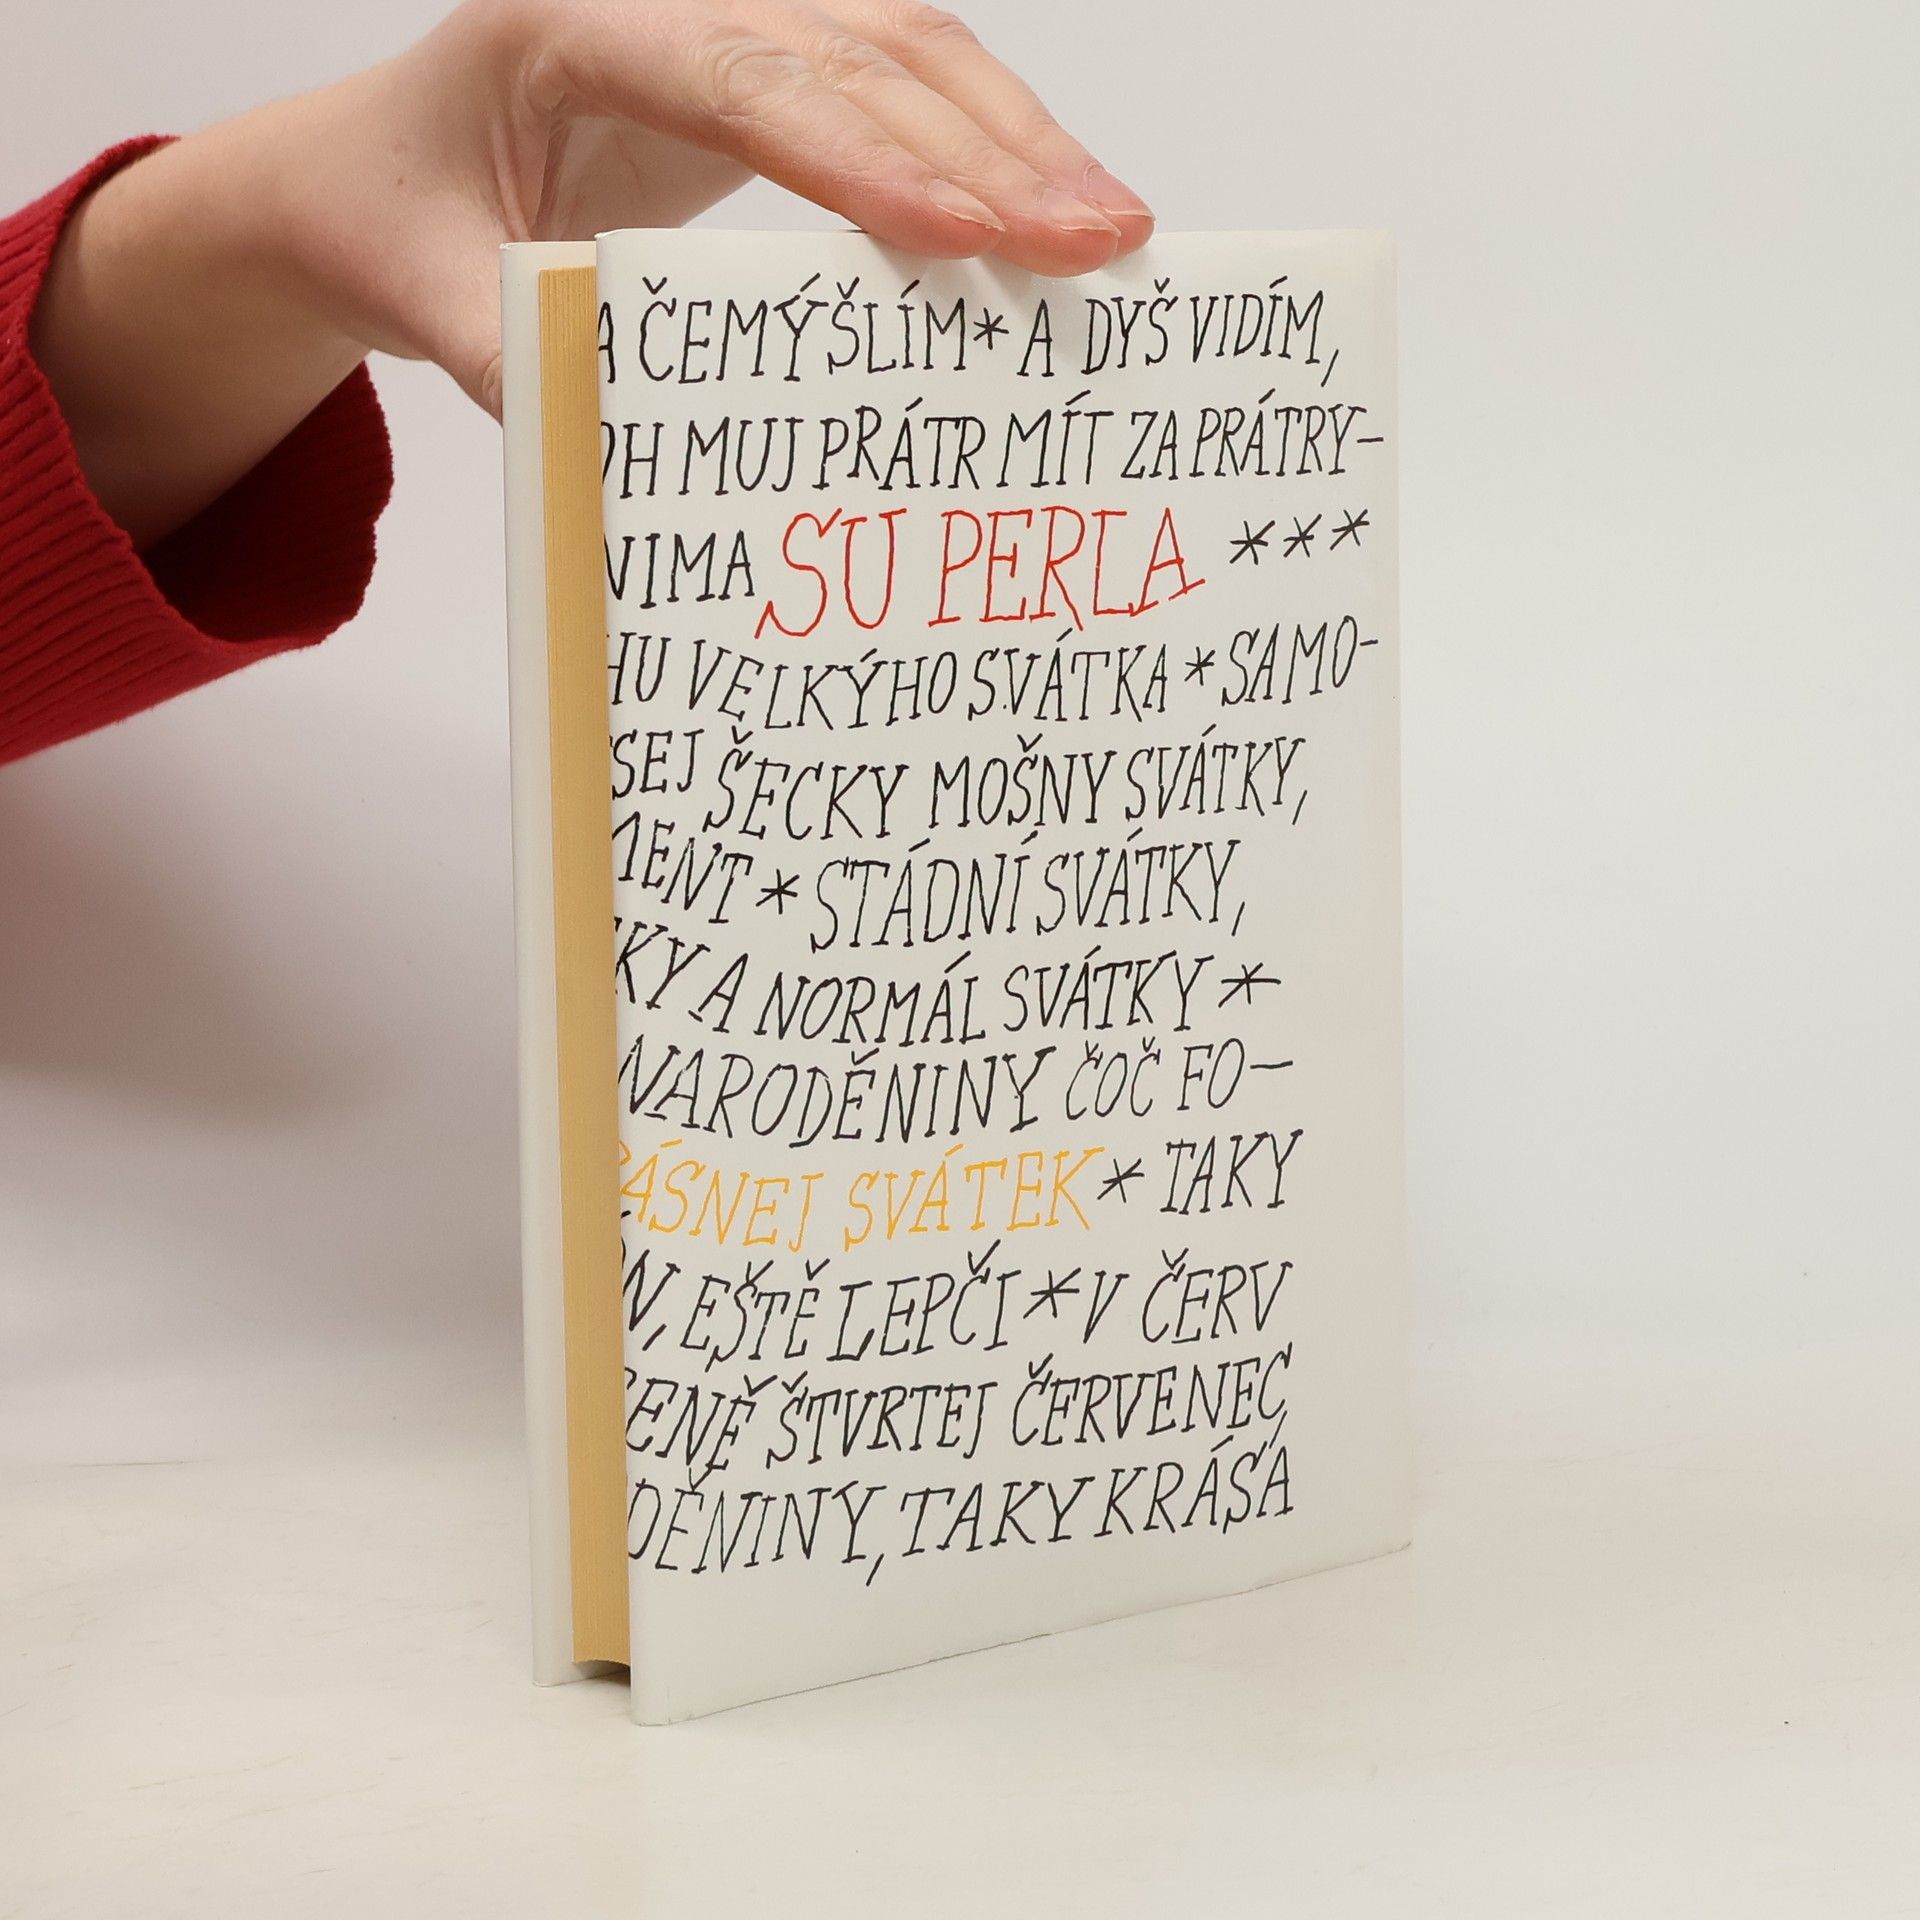 A ČEMÝŠLÍM * A DYŠ VIDÍM,
MUJ PRÁTR MÍT ZA PRÁTRY-
NIMA SU PERLA ***
HU VELKÝHO SVÁTKA * SAMO-
SEJ ŠECKY MOŠNY SVÁTKY,
MENT * STÁDNÍ SVÁTKY,
KY A NORMÁL SVÁTKY *
NARODĚNINY ČOČ FO-
ÁSNEJ SVÁTEK * TAKY
N, EŠTĚ LEPČI * V ČERV
ENĚ ŠTVRTEJ ČERVENEC,
DĚNINY, TAKY KRÁSA